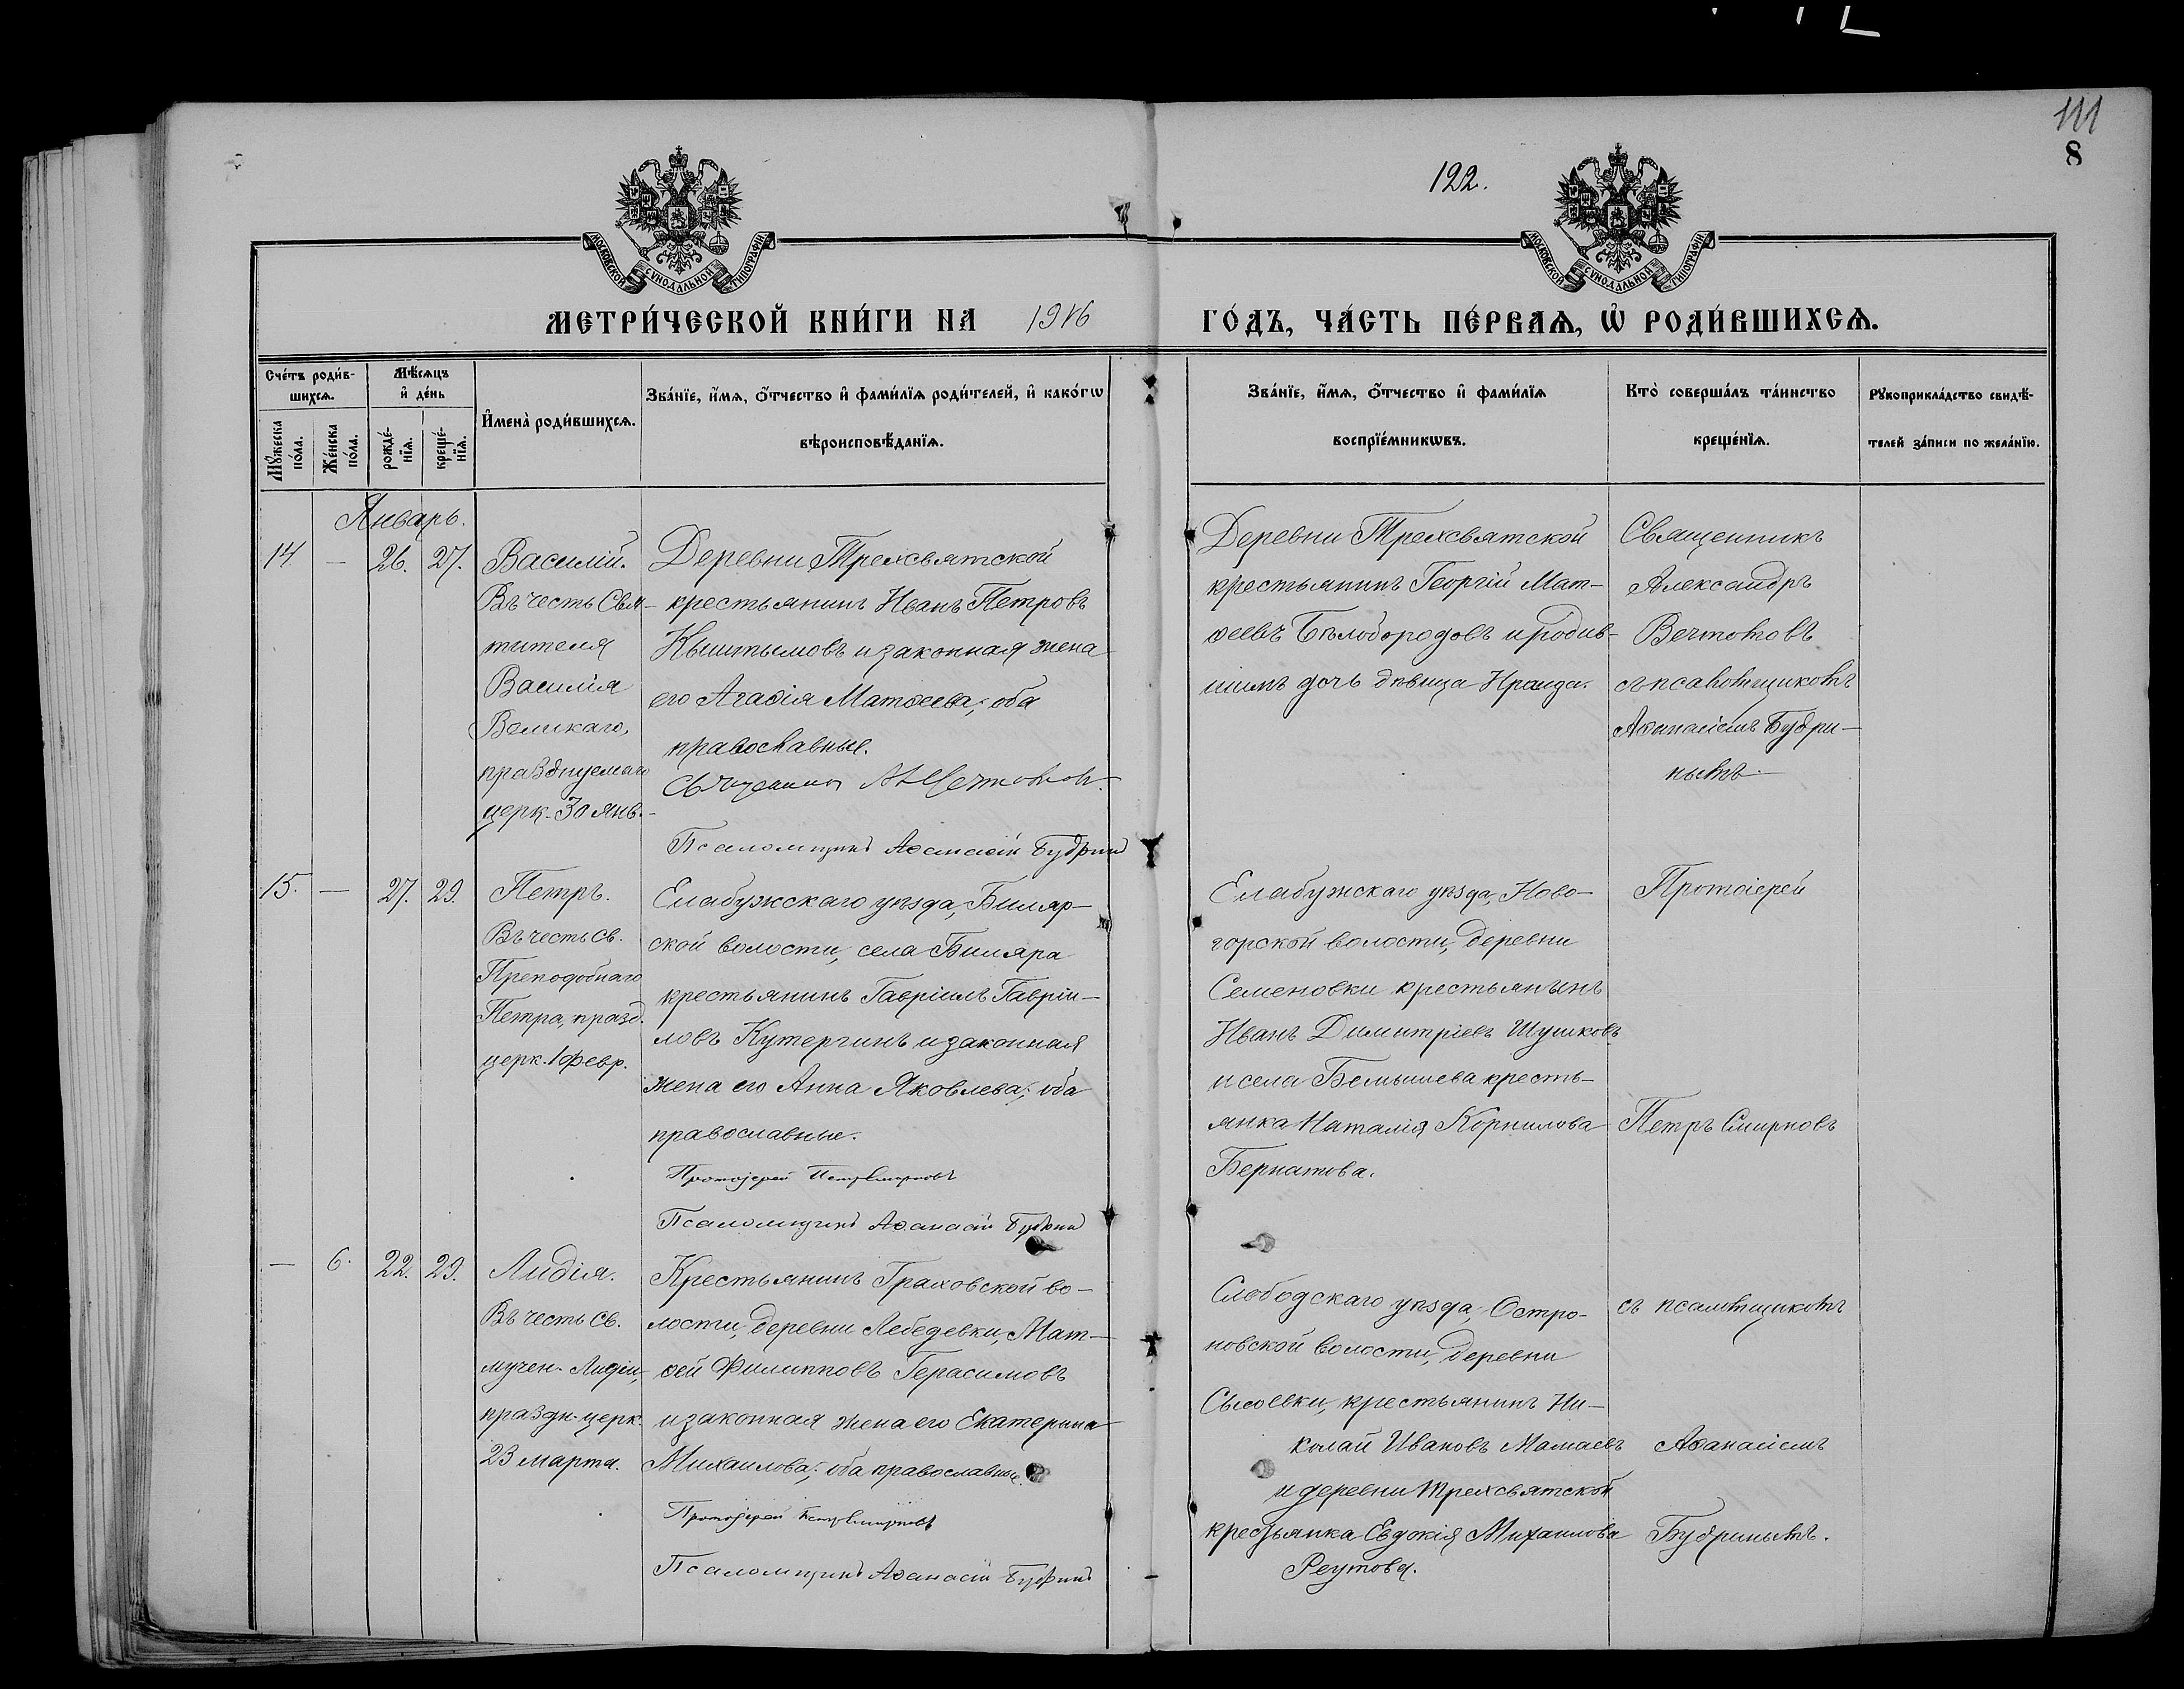 111
8
122.
МОСКОВСКОЙ СѴНОДАЛЬНОЙ ТИПОГРАФІИ
МОСКОВСКОЙ СѴНОДАЛЬНОЙ ТИПОГРАФІИ
МЕТРИ́ЧЕСКОЙ КНИ́ГИ НА 1916 ГО́ДЪ, ЧА́СТЬ ПЕ́РВАѦ, Ѡ҆ РОДИ́ВШИХСѦ.
Сче́тъ роди́в-
шихсѧ.
Мꙋ́жеска
по́ла.
Же́нска
по́ла.
Мѣ́сѧцъ
и҆ де́нь
рожде́-
нїѧ.
креще́-
нїѧ.
И҆мена̀ роди́вшихсѧ.
Зва́нїе, и҆́мѧ, ѻ҆́тчество и҆ фами́лїѧ роди́телей, и҆ како́гѡ
вѣроисповѣ́данїѧ.
Зва́нїе, и҆́мѧ, ѻ҆́тчество и҆ фами́лїѧ
воспрїе́мникѡвъ.
Кто̀ соверша́лъ та́инство
креще́нїѧ.
Рꙋкоприкла́дство свидѣ́-
телей за́писи по жела́нїю.
Январь.
14 — 26. 27.
Василій.
Въ честь Свя-
тителя
Василія
Великаго,
празднуемаго
церк. 30 янв.
Деревни Трехсвятской
крестьянинъ Иванъ Петровъ
Кыштымовъ и законная жена
его Агаѳія Матѳеева; оба
православные.
Священникъ Ал Вечтомовъ.
Псаломщикъ Аѳанасій Будринъ
Деревни Трехсвятской
крестьянинъ Георгій Мат-
ѳеевъ Бѣлобородовъ и родив-
шимъ дочь дѣвица Ираида.
Священникъ
Александръ
Вечтомовъ
съ псаломщикомъ
Аѳанасіемъ Будри-
нымъ.
15. — 27. 29.
Петръ.
Въ честь св.
Преподобнаго
Петра, празд.
церк. 1 февр.
Елабужскаго уѣзда, Биляр-
ской волости, села Биляра
крестьянинъ Гавріилъ Гавріи-
ловъ Кутергинъ и законная
жена его Анна Яковлева; оба
православные.
Протоіерей Петръ Смирновъ
Псаломщикъ Аѳанасій Будринъ
Елабужскаго уѣзда, Ново-
горской волости, деревни
Семеновки крестьянинъ
Иванъ Димитріевъ Шушковъ
и села Бемышева кресть-
янка Наталія Корнилова
Бернатова.
Протоіерей
Петръ Смирновъ
— 6. 22. 29.
Лидія.
Въ честь св.
мучен. Лидіи,
праздн. церк.
23 марта.
Крестьянинъ Граховской во-
лости, деревни Лебедевки, Мат-
ѳей Филипповъ Герасимовъ
и законная жена его Екатерина
Михаилова; оба православные.
Протоіерей Петръ Смирновъ
Псаломщикъ Аѳанасій Будринъ
Слободскаго уѣзда, Остро-
новской волости, деревни
Сысоевки, крестьянинъ Ни-
колай Ивановъ Мамаевъ
и деревни Трехсвятской
крестьянка Евдокія Михаилова
Реутова.
съ псаломщикомъ
Аѳанасіемъ
Будринымъ.